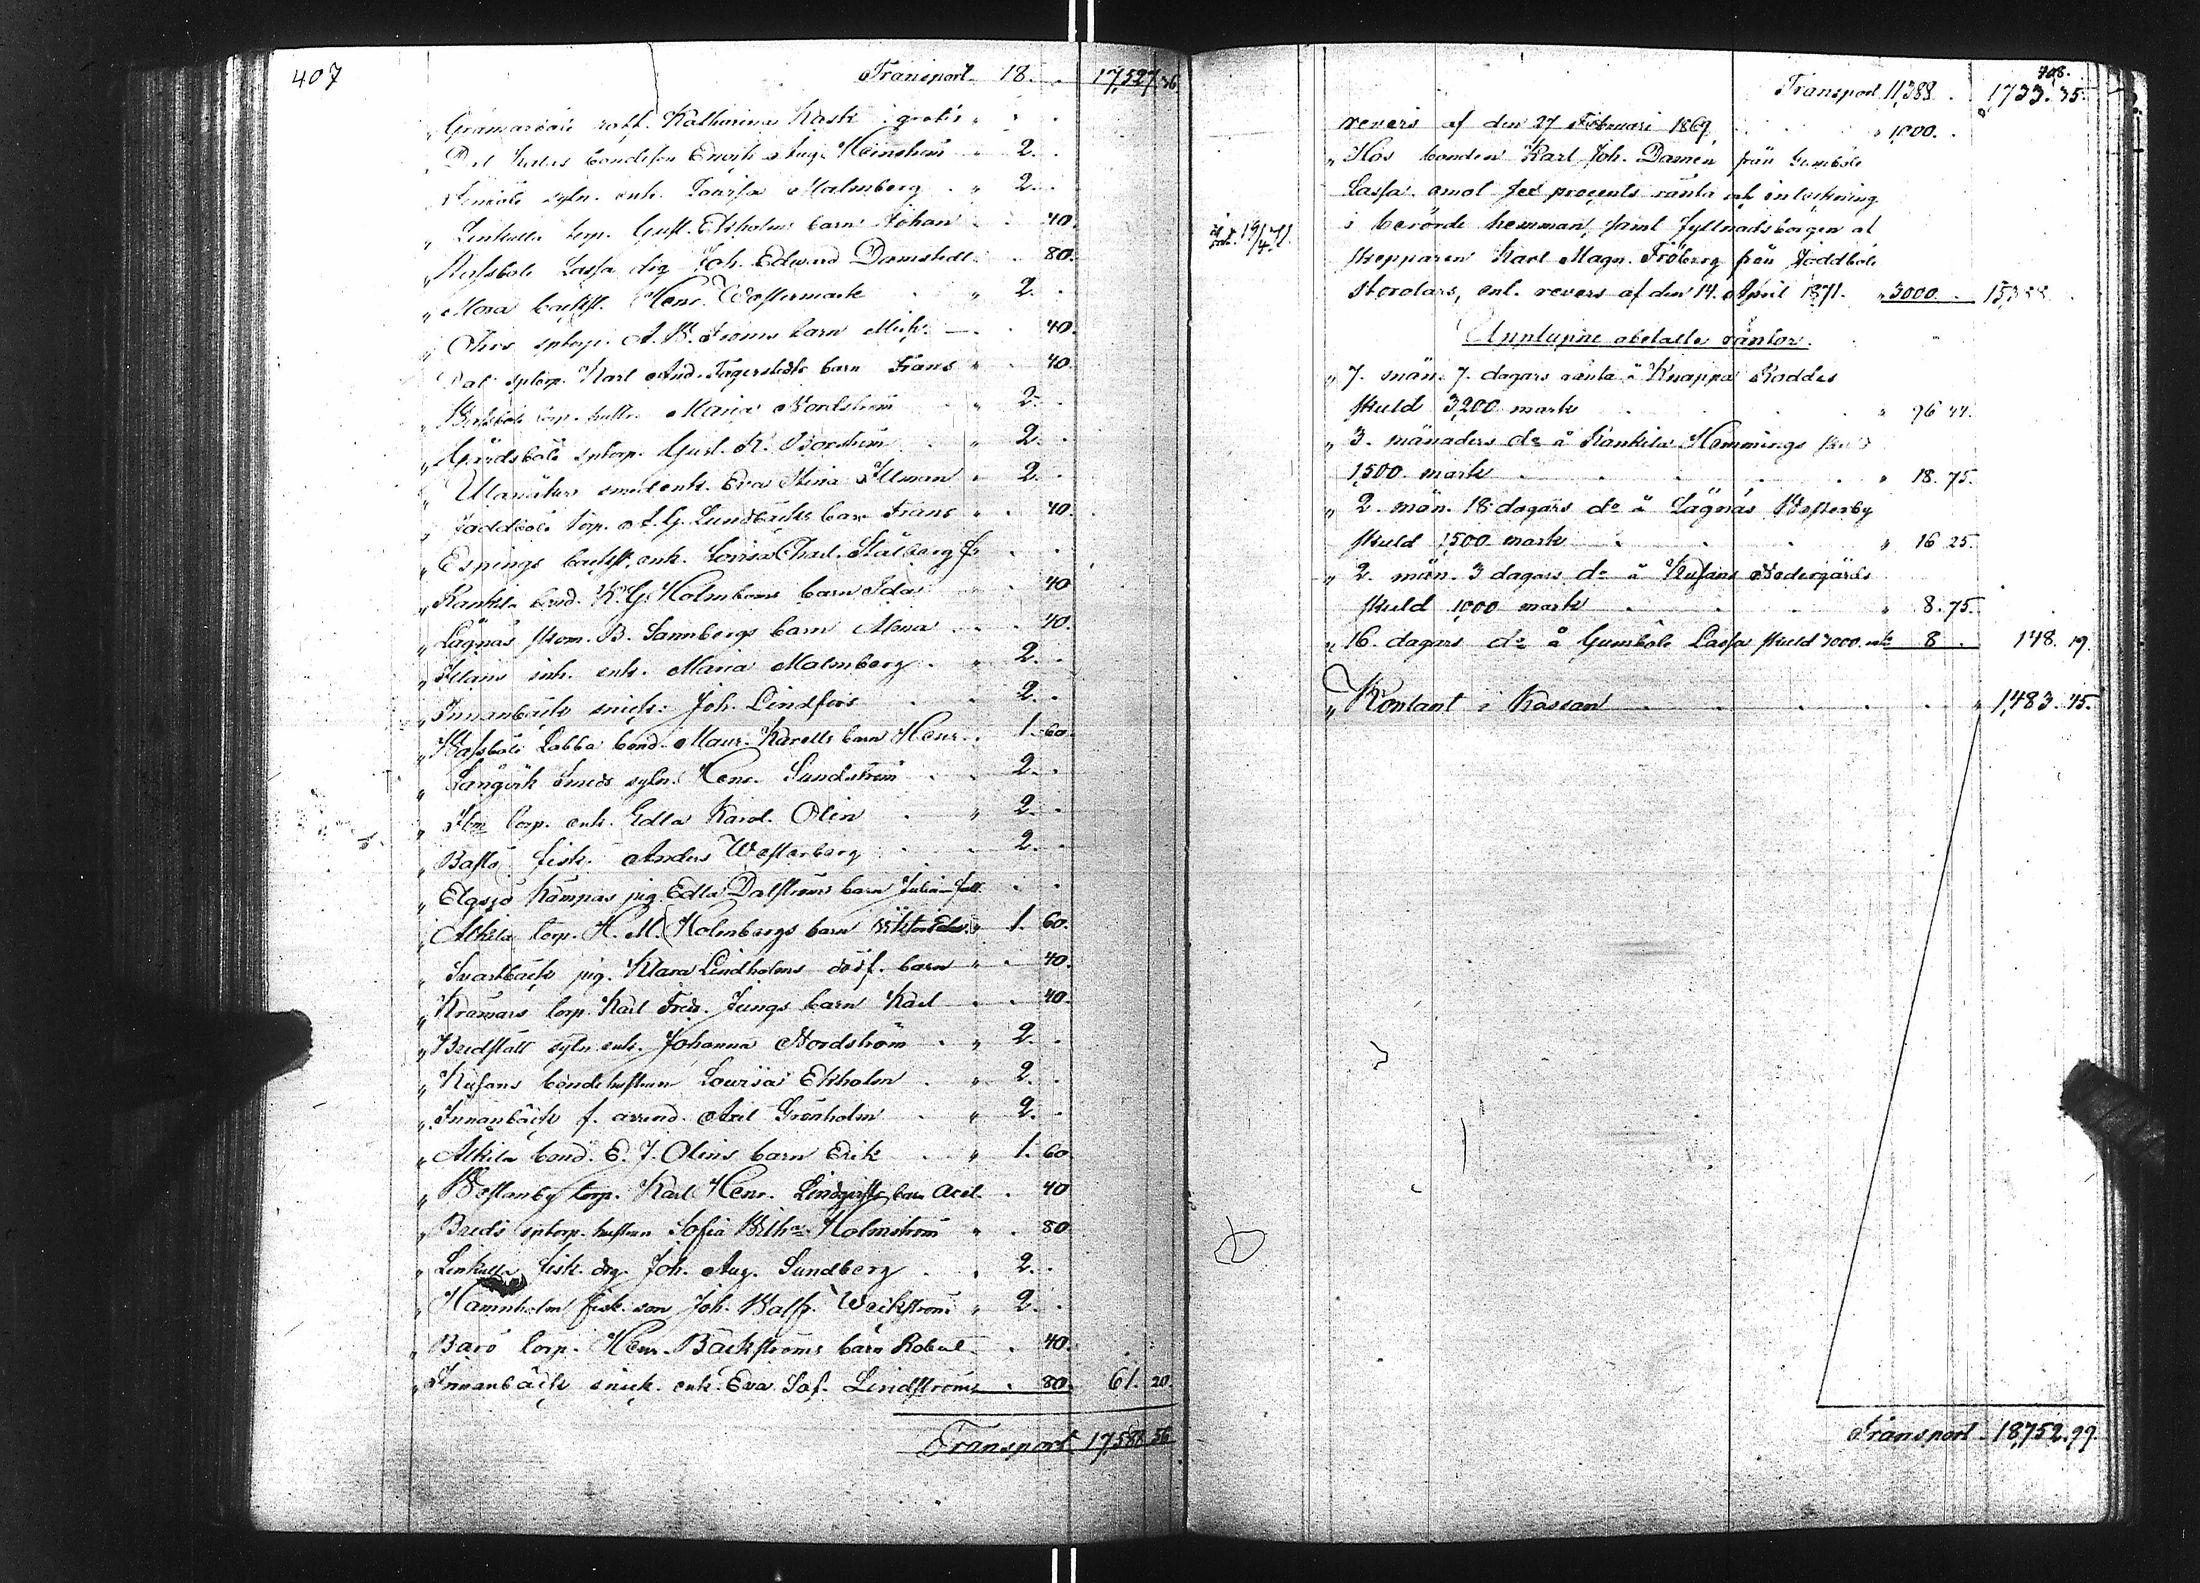 407
Transport 18. . 17,527.36
" Gramarsöis rott. Katharina Kask gratis " . .
" Dal Kalas bondeson Enrik Aug. Heinström " 2. .
sytn. enk. Lovisa Malmberg . " 2. .
" Linkulla torp. Gust. Ekholms barn Johan . . 40.
Lassa drg Joh. Edvard Damstedt . . 80.
" Mora backst. Henr. Westermark . " 2. .
sptorp. A. W. Ströms barn Mich. . 40.
" Dal sptorp. Karl And. Fagerstedts barn Frans " . 40.
torp. hustr. Maria Nordström . " 2. .
" Gårdsböle sptorp. Gust. R. Boström . " 2. .
" Ulanåkers smedenk. Eva Stina Illman " 2. .
" Joddböle torp. A. G. Lundbäcks barn Frans " . 40.
" Espings backst. enk. Lovisa Charl. Stålberg fr . .
" Rankila bond. K. G. Holmboms barn Ida . 40
" Lägnäs skom. B. Sannbergs barn Mona . . 40.
inh. enk. Maria Malmberg . " 2. .
" Innanbäck snick. Joh. Lindfors . . 2. .
" Wassböle Labba bond. Maur. Karells barn Henr. . 1. 60.
" Långvik Smeds sytn. Henr. Sundström . . 2. .
torp. enk. Edla Karol. Olin . " 2. .
" Bastö fisk. Anders Westerberg . . 2. .
" Elgsjö Kampas pig. Edla Dalströms barn Julia fatt. . .
" Alkila torp. H. M. Holmbergs barn Viktor Edv. " 1. 60.
" Svartbäck pig. Klara Lindholms dödf. barn " . 40.
" Kramars torp. Karl Fredr. Ljungs barn Karl . . 40.
" Bredslätt sytn enk. Johanna Nordström . " 2. .
" Kusans bondehustrun Lovisa Ekholm . " 2. .
" Innanbäck f. arrend. Axel Grönholm . " 2. .
" Alkila bond. E. J. Olins barn Erik . " 1. 60.
" Westanby torp. Karl Henr. Lindqvists barn Axel. . 40
" Breds sptorp. hustrun Sofia Wilhna Holmström " . 80
" Linkulla fisk. drg. Joh. Aug. Sundberg . . 2. .
" Hamnholm fisk. son Joh. Walfr. Weckström " 2. .
" Barö torp. Henr. Bäckströms barn Robert . 40.
" Innanbäck snick. enk. Eva Sof. Lindström . 80. 61. 20.
Transport 17,588 56
408.
Transport 11,388 . 1,733. 35.
revers af den 27 Februari 1869 . . . " 1,000. .
" Hos bonden Karl Joh. Damén från Gumböle
Lassa emot sex procents ränta och inteckning
i berörde hemman, samt fyllnadsborgen af
19/4 71.
skepparen Karl Magn. Fröberg från Joddböle
Storolars, enl. revers af den 14. April 1871. " 3000. . 15,388 .
Upplupne obetalte räntor.
" 7. mån. 7. dagars ränta å Knappa Roddes
skuld 3,200 mark . . . " 96 44.
" 3. månaders do å Rankila Hemmings
1,500 mark . . . . " 18. 75.
" 2. mån. 18 dagars do å Lägnäs Westerby
skuld 1,500 mark . . . " 16 25.
" 2. mån. 3 dagars do å Kusans Nedergårds
skuld 1,000 mark . . . " 8. 75.
" 16. dagars do å Gumböle Lassa skuld 3000. mk 8 . 148. 19.
" Kontant i Kassan . . . . . " 1,483. 45.
Transport 18,752. 99.